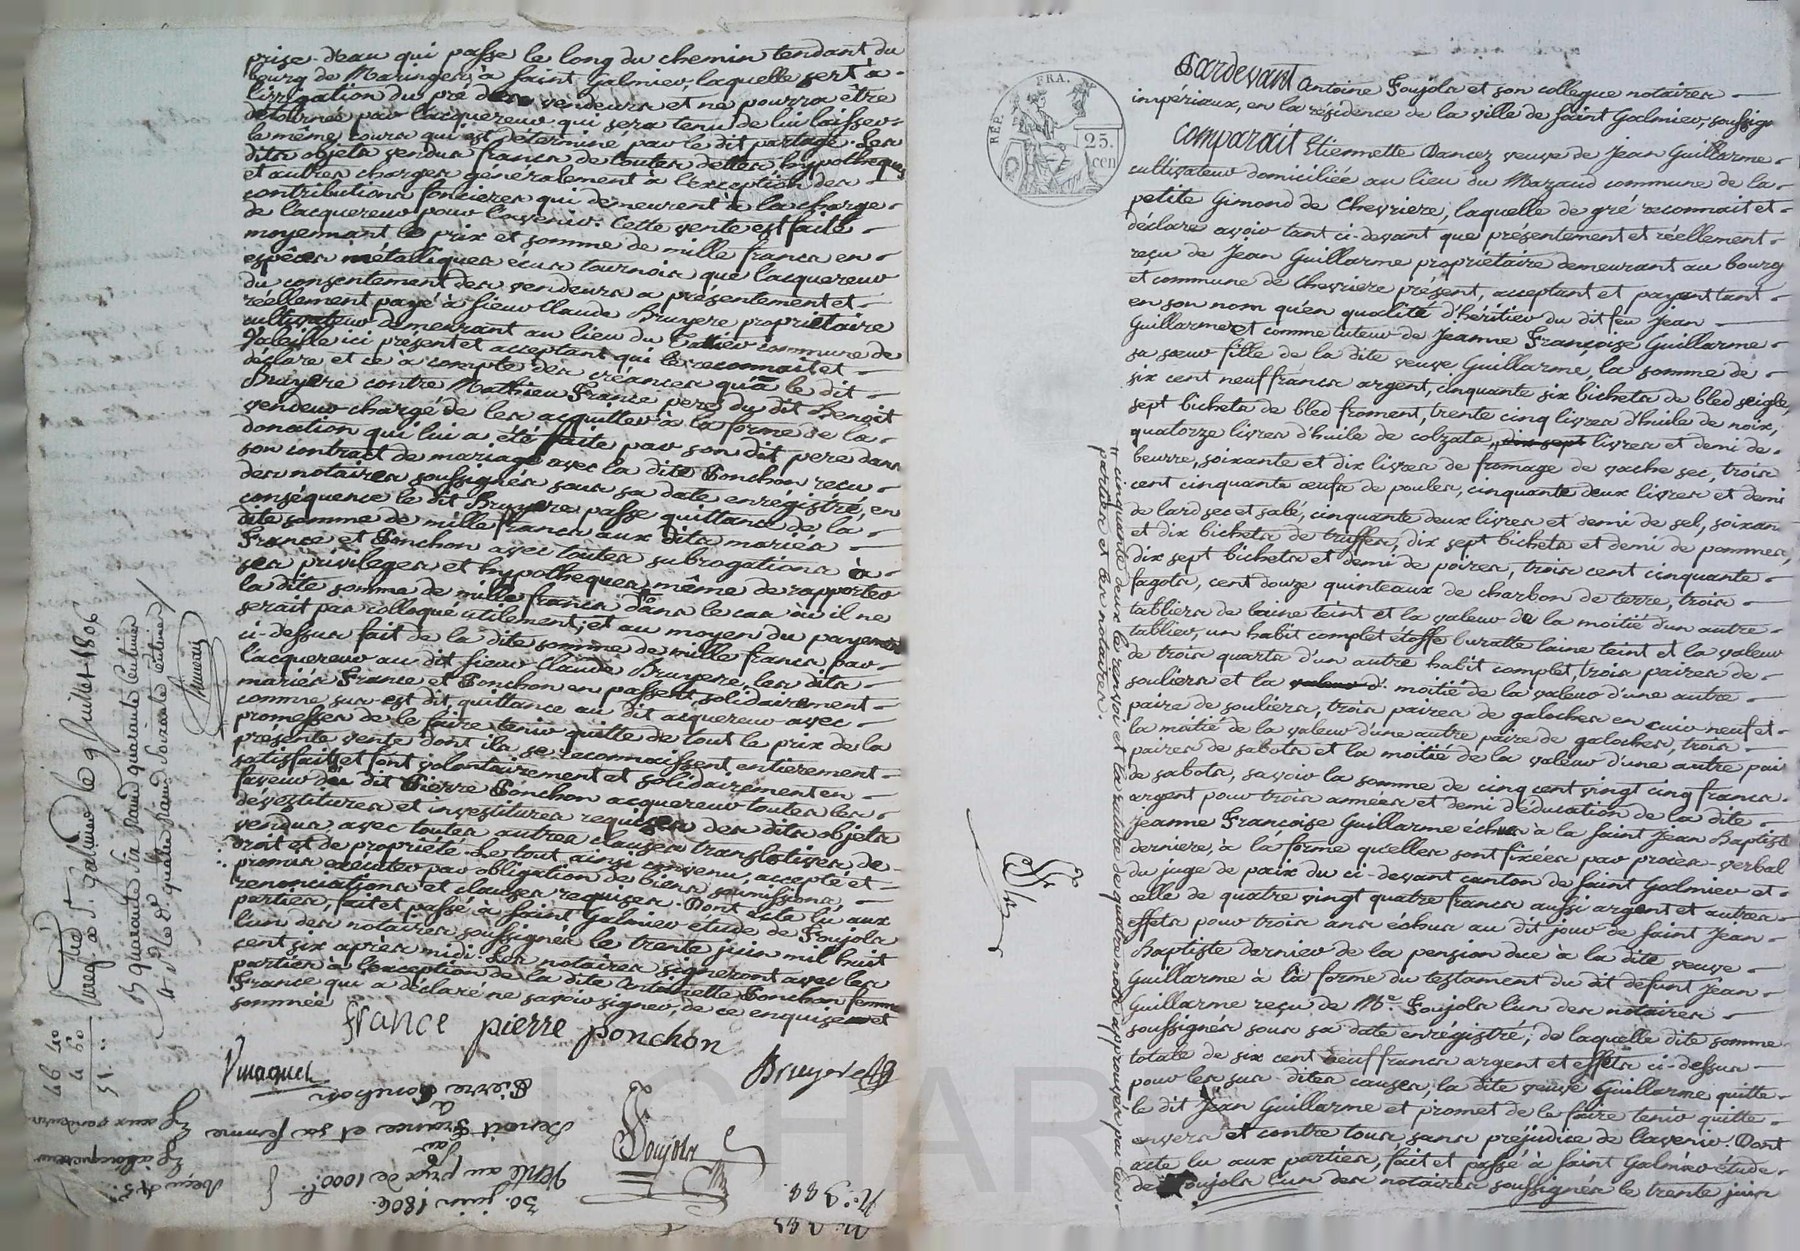 prise-d'eau qui passe le long du chemin tendant du
bourg de Maringes à Saint Galmier, laquelle sert à
l'irrigation du pré des vendeurs et ne pourra être
détournée par l'acquereur qui sera tenu de lui laisser
le même cours qui est déterminé par le dit partage. Les
dits objets vendus francs de toutes dettes hypotheques
et autres charges généralement à l'exception des
contributions foncieres qui demeurent à la charge
de l'acquereur pour l'avenir. Cette vente est faite
moyennant le prix et somme de mille francs en
espèces métalliques écus tournois que l'acquereur
du consentement des vendeurs a présentement et
réellement payé à sieur Claude Bruyere propriétaire
cultivateur demeurant au lieu du commune de
Valeille ici présent et acceptant qui le reconnait et
déclare et ce à compte des créances qu'a le dit
Bruyere contre Mathieu France pere du dit Benoit
vendeur chargé de les acquitter à la forme de la
donation qui lui a été faite par son dit pere dans
son contract de mariage avec la dite Ponchon reçu
des notaires soussignés sous sa date enrégistré, en
conséquence le dit Bruyere passe quittance de la
dite somme de mille francs aux dits mariés
France et Ponchon avec toutes subrogations à
ses privileges et hypotheques, même de rapporter
la dite somme de mille francs dans le cas où il ne
serait pas colloqué utilement; et au moyen du payement
ci-dessus fait de la dite somme de mille francs par
l'acquereur au dit sieur Claude Bruyere, les dits
mariés France et Ponchon en passent solidairement
comme sus est dit, quittance au dit acquereur avec
promesse de le faire tenir quitte de tout le prix de la
présente vente dont ils se reconnaissent entierement
satisfaits et font volontairement et solidairement en
faveur du dit Pierre Ponchon acquereur toutes les
devestitures et investitures requises des dits objets
vendus avec toutes autres clauses translatives de
droit et de propriété. Le tout ainsi convenu, accepté et
promis executer par obligation de biens, soumissions,
renonciations et clauses requises. Dont acte lu aux
parties, fait et passé à Saint Galmier étude de Poujols
l'un des notaires soussignés le trente juin mil huit
cent six après midi. Les notaires signeront avec les
parties à l'exception de la dite Antoinette Ponchon femme
France qui a déclaré ne savoir signer, de ce enquise et
sommée
france pierre ponchon
Bruyere
Poujols
Enreg.tré à St. Galmier le 9 Juillet 1806
46 40
4 60
51 ..
N.o 344.
30 juin 1806.
Vente au prix de 1000 f.
par
Benoit France et sa femme
à
Pierre Ponchon
REP. FRA.
25.
cen
Pardevant Antoine Poujols et son collegue notaires
impériaux, en la résidence de la ville de Saint Galmier, soussig
Comparait Etiennette Dancez veuve de Jean Guillarme
cultivateur domiciliée au lieu du Mazaud commune de la
petite Gimond de Chevriere, laquelle de gré reconnait et
déclare avoir tant ci-devant que présentement et réellement
reçu de Jean Guillarme propriétaire demeurant au bourg
et commune de Chevriere présent, acceptant et payant tant
en son nom qu'en qualité d'héritier du dit feu Jean
Guillarme et comme tuteur de Jeanne Françoise Guillarme
sa sœur fille de la dite veuve Guillarme, la somme de
six cent neuf francs argent, cinquante six bichets de bled seigle,
sept bichets de bled froment, trente cinq livres d'huile de noix,
quatorze livres d'huile de colzats, dix sept livres et demi de
beurre, soixante et dix livres de fromage de vache sec, trois
cent cinquante œufs de poules, cinquante deux livres et demi
de lard sec et salé, cinquante deux livres et demi de sel, soixan
et dix bichets de truffes, dix sept bichets et demi de pommes,
dix sept bichets et demi de poires, trois cent cinquante
fagots, cent douze quinteaux de charbon de terre, trois
tabliers de laine teint et la valeur de la moitié d'un autre
tablier, un habit complet étoffe buratte laine teint et la valeur
de trois quarts d'un autre habit complet, trois paires de
souliers et la valeur d. moitié de la valeur d'une autre
paire de souliers, trois paires de galoches en cuir neuf et
la moitié de la valeur d'une autre paire de galoches, trois
paires de sabots et la moitié de la valeur d'une autre pair
de sabots, savoir la somme de cinq cent vingt cinq francs
argent pour trois années et demi d'éducation de la dite
Jeanne Françoise Guillarme échus à la Saint Jean Baptiste
derniere, à la forme qu'elles sont fixées par procès-verbal
du juge de paix du ci-devant canton de Saint Galmier et
celle de quatre vingt quatre francs aussi argent et autres
effets pour trois ans échus au dit jour de Saint Jean
Baptiste dernier de la pension due à la dite veuve
Guillarme à la forme du testament du dit defunt Jean
Guillarme reçu de M.e Poujols l'un des notaires
soussignés sous sa date enrégistré; de laquelle dite somme
totale de six cent neuf francs argent et effets ci-dessus
pour les sus-dites causes, la dite veuve Guillarme quitte
le dit Jean Guillarme et promet de le faire tenir quitte
envers et contre tous, sans préjudice de l'avenir. Dont
acte lu aux parties, fait et passé à Saint Galmier étude
de Poujols l'un des notaires soussignés le trente juin
cinquante deux le renvoi et la rature de quatre mots approuvés par les
parties et les notaires.